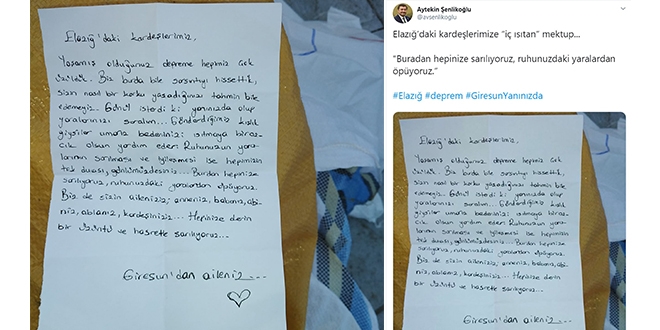 Elazığ'daki kardeşlerimiz,
Yaşamış olduğunuz depreme hepimiz çok
üzüldük. Biz burda bile sarsıntıyı hissettik,
sizin nasıl bir korku yaşadığınızı tahmin bile
edemeyiz. Gönül isterdi ki yanınızda olup
yaralarınızı saralım... Gönderdiğimiz kışlık
giysiler umarız bedeninizi ısıtmaya biraz-
cık olsun yardım eder. Ruhunuzun yara-
larının sarılması ve iyileşmesi ise hepimizin
tek duası, gönlümüzdesiniz... Burdan hepinize
sarılıyoruz, ruhunuzdaki yaralardan öpüyoruz.
Biz de sizin aileniziz; anneniz, babanız, abi-
niz, ablanız, kardeşiniziz... Hepinize derin
bir üzüntü ve hasretle sarılıyoruz...
Giresun'dan aileniz...
Aytekin Şenlikoğlu
@avsenlikoglu
Elazığ'daki kardeşlerimize "iç ısıtan" mektup...
"Buradan hepinize sarılıyoruz, ruhunuzdaki yaralardan
öpüyoruz."
#Elazığ #deprem #GiresunYanınızda
Elazığ'daki kardeşlerimiz,
Yaşamış olduğunuz depreme hepimiz çok
üzüldük. Biz burda bile sarsıntıyı hissettik,
sizin nasıl bir korku yaşadığınızı tahmin bile
edemeyiz. Gönül isterdi ki yanınızda olup
yaralarınızı saralım... Gönderdiğimiz kışlık
giysiler umarız bedeninizi ısıtmaya biraz-
cık olsun yardım eder. Ruhunuzun yara-
larının sarılması ve iyileşmesi ise hepimizin
tek duası, gönlümüzdesiniz... Burdan hepinize
sarılıyoruz, ruhunuzdaki yaralardan öpüyoruz.
Biz de sizin aileniziz; anneniz, babanız, abi-
niz, ablanız, kardeşiniziz... Hepinize derin
bir üzüntü ve hasretle sarılıyoruz...
Giresun'dan aileniz...